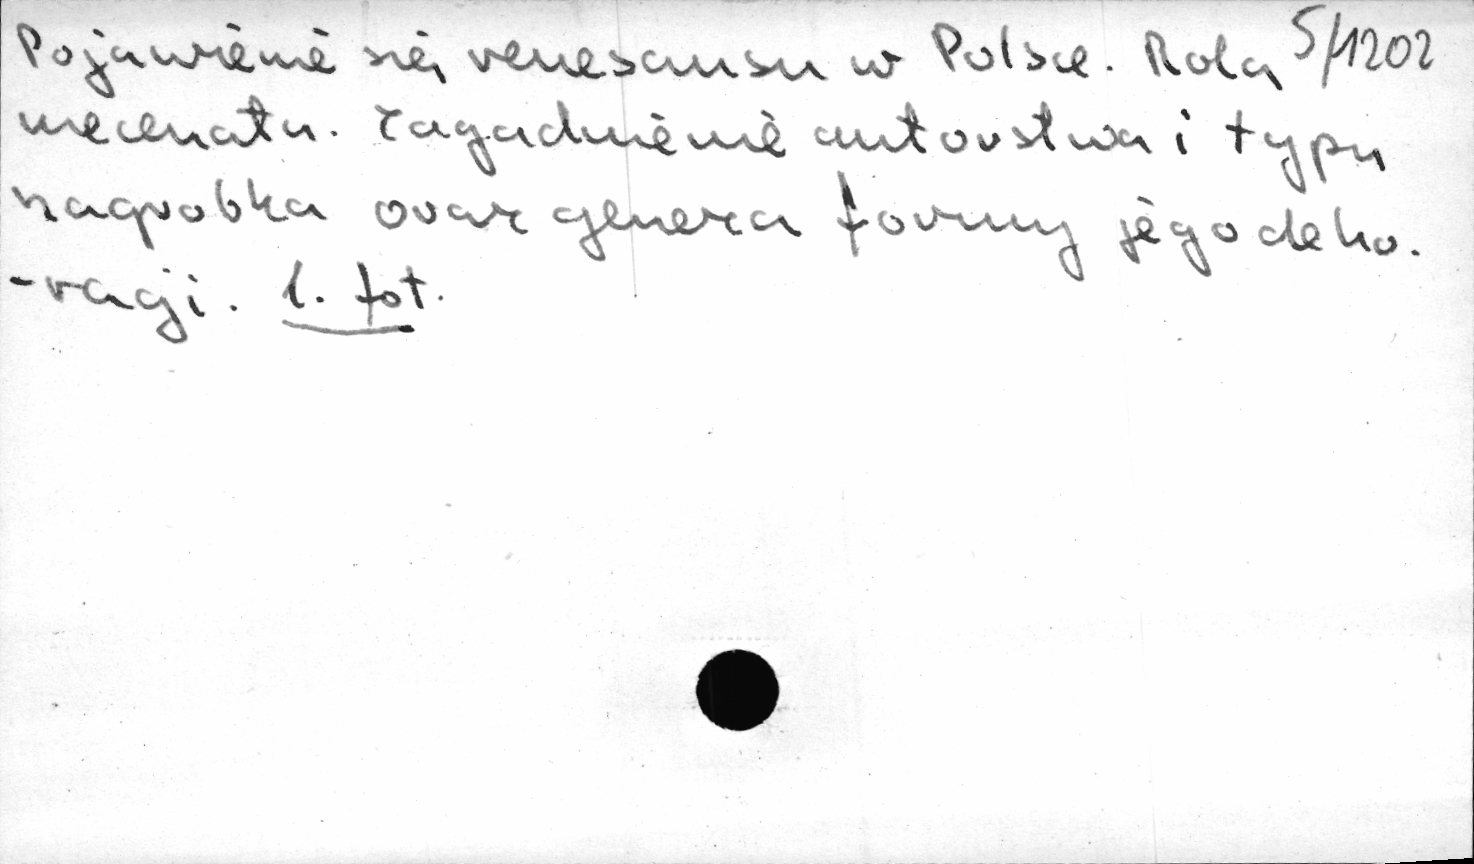 Pojawienie się renesansu w Polsce. Rola 5/1202
mecenatu. Zagadnienie autorstwa i typu
nagrobka oraz geneza formy jego deko-
-racji. 1. fot.